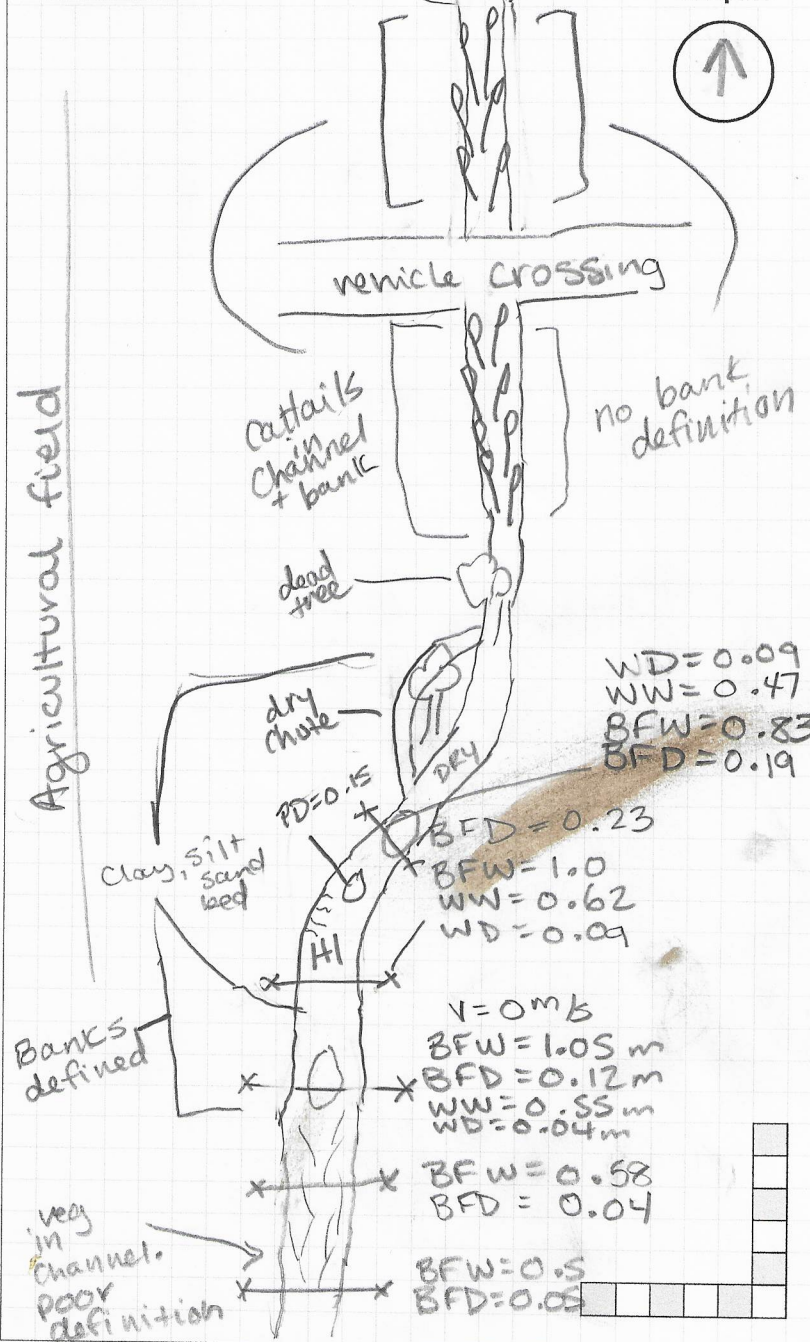 vehicle crossing
Cattails
in
Channel
+ bank
no bank
definition
Agricultural field
dead
tree
dry
chute
DRY
WD=0.09
WW=0.47
BFW=0.83
BFD=0.19
PD=0.15
BFD=0.23
BFW=1.0
WW=0.62
WD=0.09
Clay, silt
sand
bed
H1
Banks
defined
V=0 m/s
BFW=1.05 m
BFD=0.12 m
WW=0.55 m
WD=0.04 m
BFW=0.58
BFD=0.04
veg
in
channel.
poor
definition
BFW=0.5
BFD=0.05